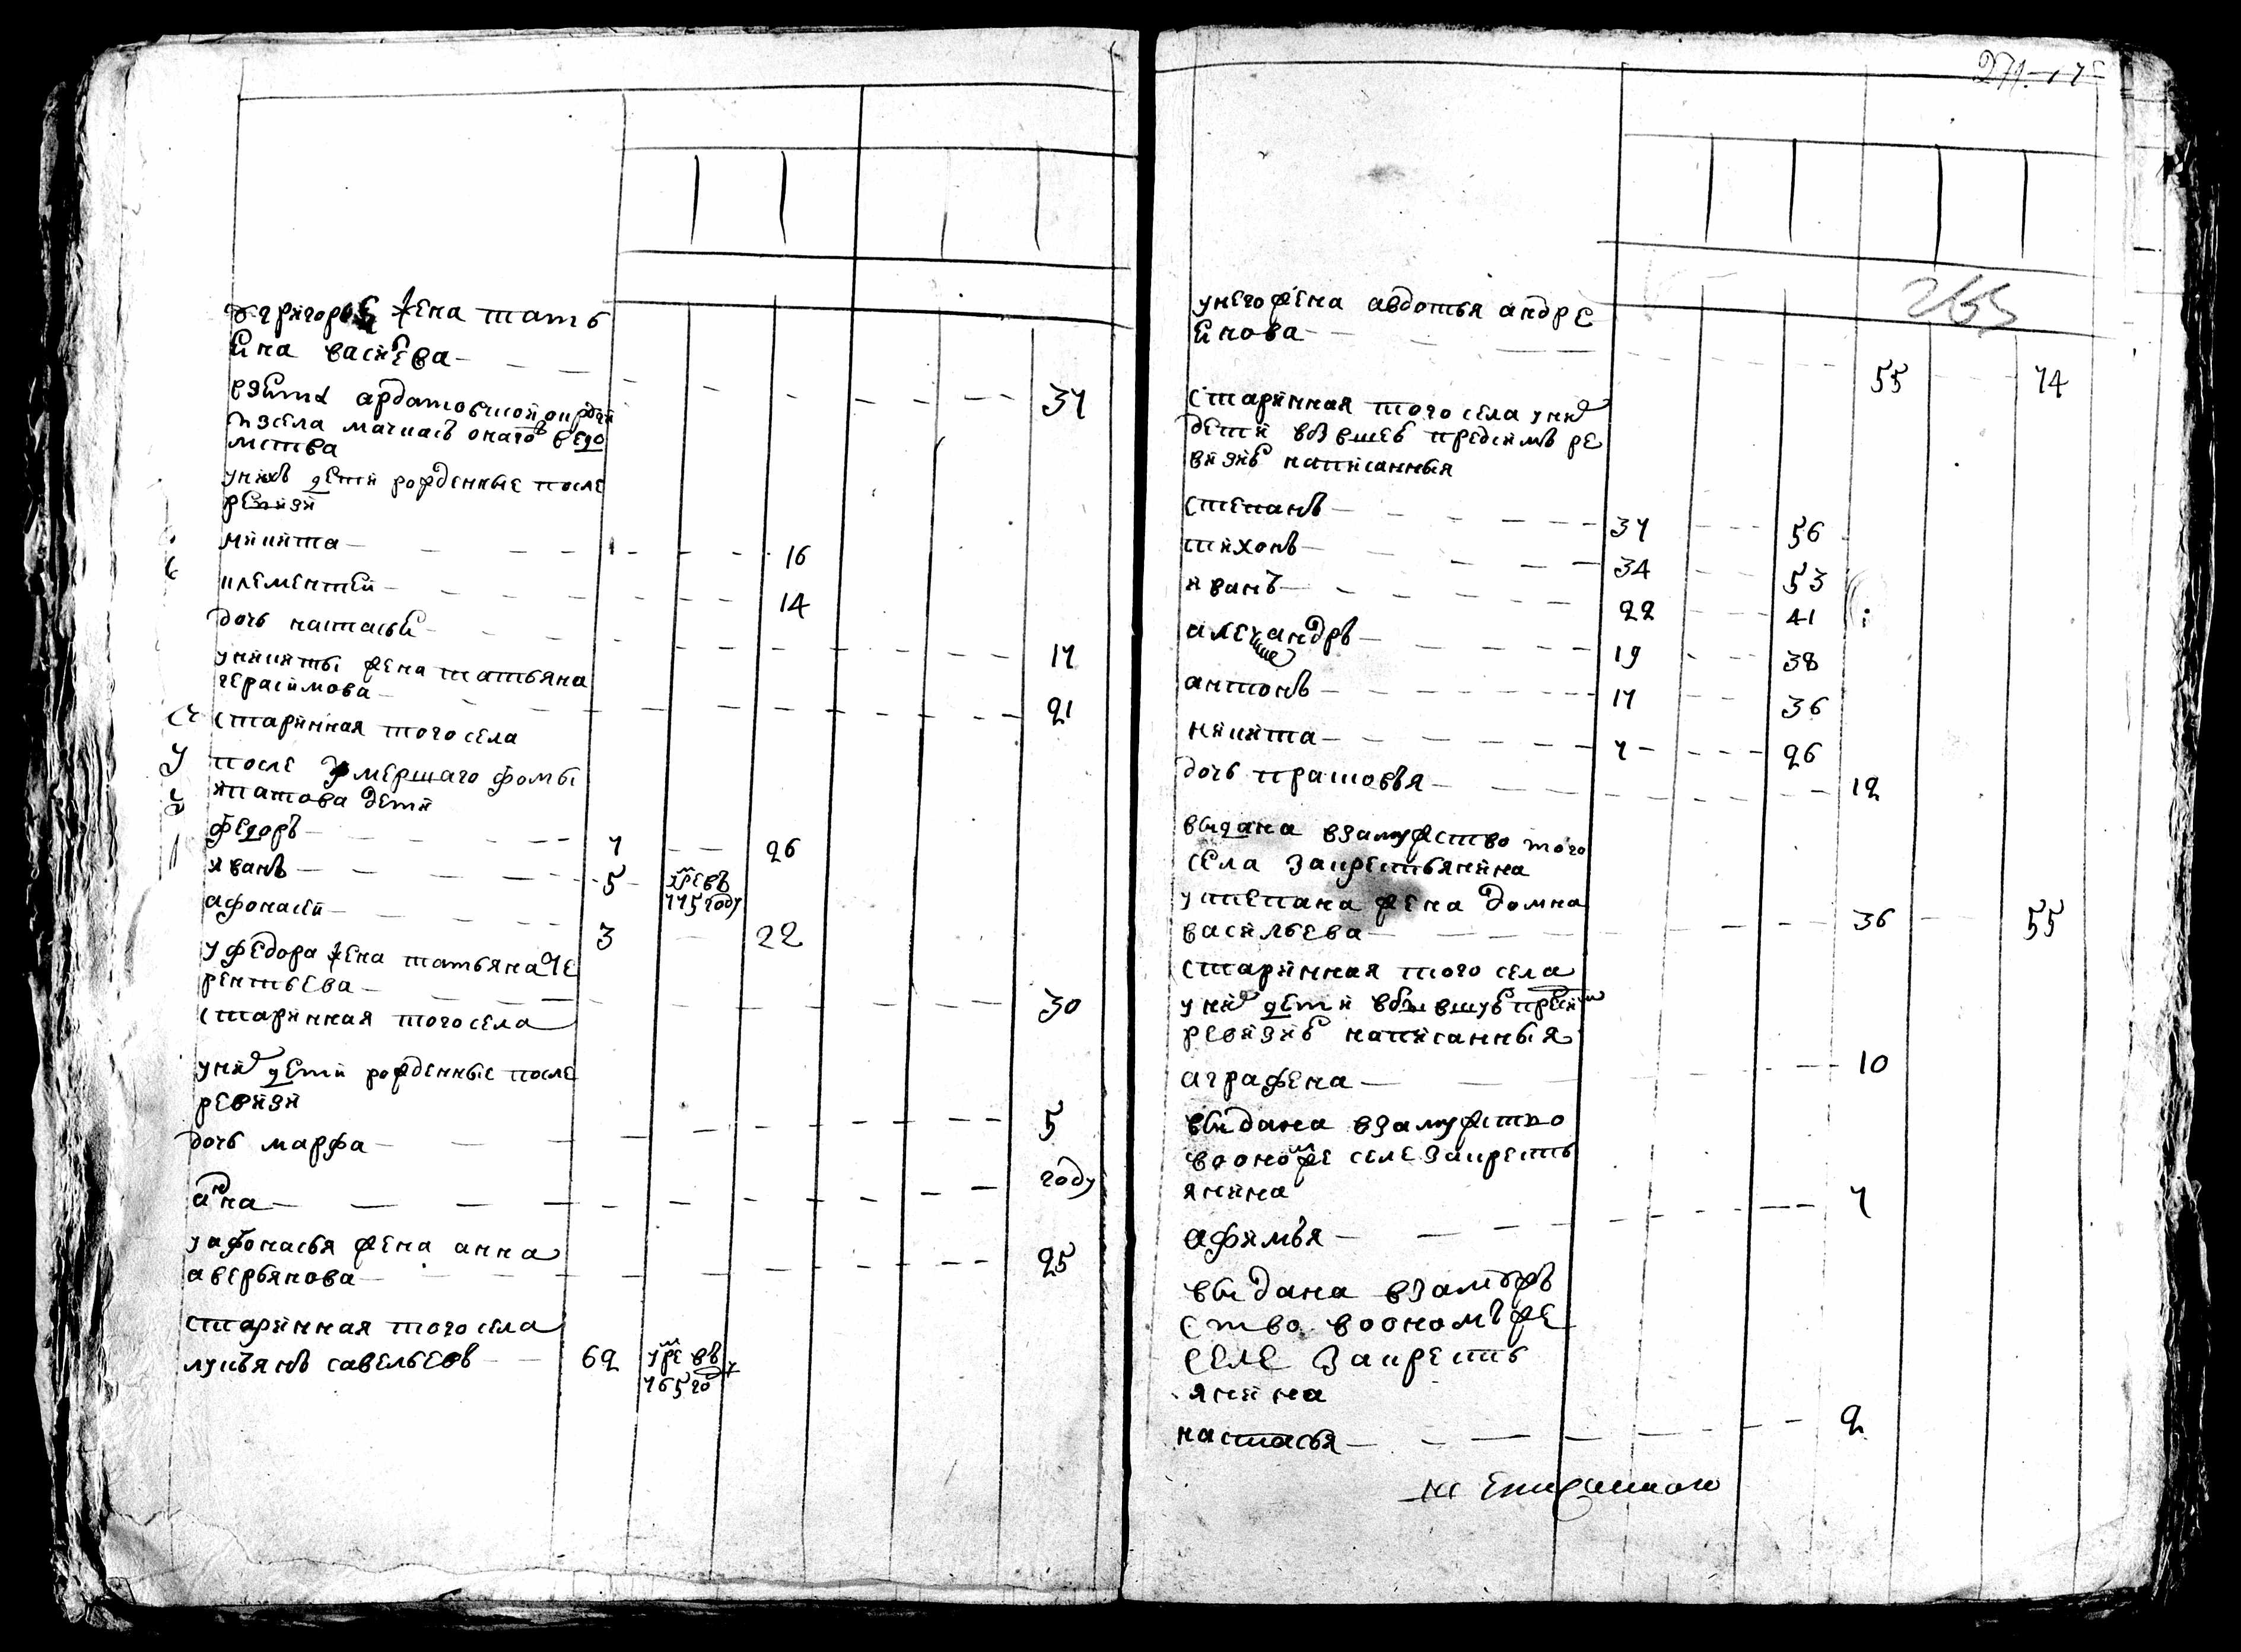 у григорья жена тать
яна василева 37
взята ардатовской округи
из села мачкасъ онаго ведо
мства
у нихъ дети рожденные после
ревизи
никита 16
клементей 14
дочь настасья 17
у никиты жена татьяна
герасимова 21
старинная того села
после умершаго фомы
детй
федоръ 7 26
иванъ 5 умре въ 775 году
афонасей 3 22
у федора жена татьяна те
рентьева 30
старинная того села
у нихъ дети рожденные после
ревизи
дочь марфа 5
анна году
у афонасья жена анна
аверьянова 25
старинная того села
лукъянъ савельевъ 62 умре въ 765 году
271
265
у него жена авдотья андре
янова 55 74
старинная того села у нихъ
дети в бывшей пред симъ ре
визиѣ написанныя
степанъ 37 56
тихонъ 34 53
иванъ 22 41
александръ 19 38
антонъ 17 36
никита 7 26
дочь прасковья 12
выдана в замужство того
села за крестьянина
у степана жена домна
васильева 36 55
старинная того села
у нихъ дети в бывшуѣ пред сим
ревизиѣ написанныя
аграфена 10
выдана в замужство
в оном же селе за кресть
янина
афимья 7
выдана в замуж
ство в ономъ же
селе за кресть
янина
настасья 2